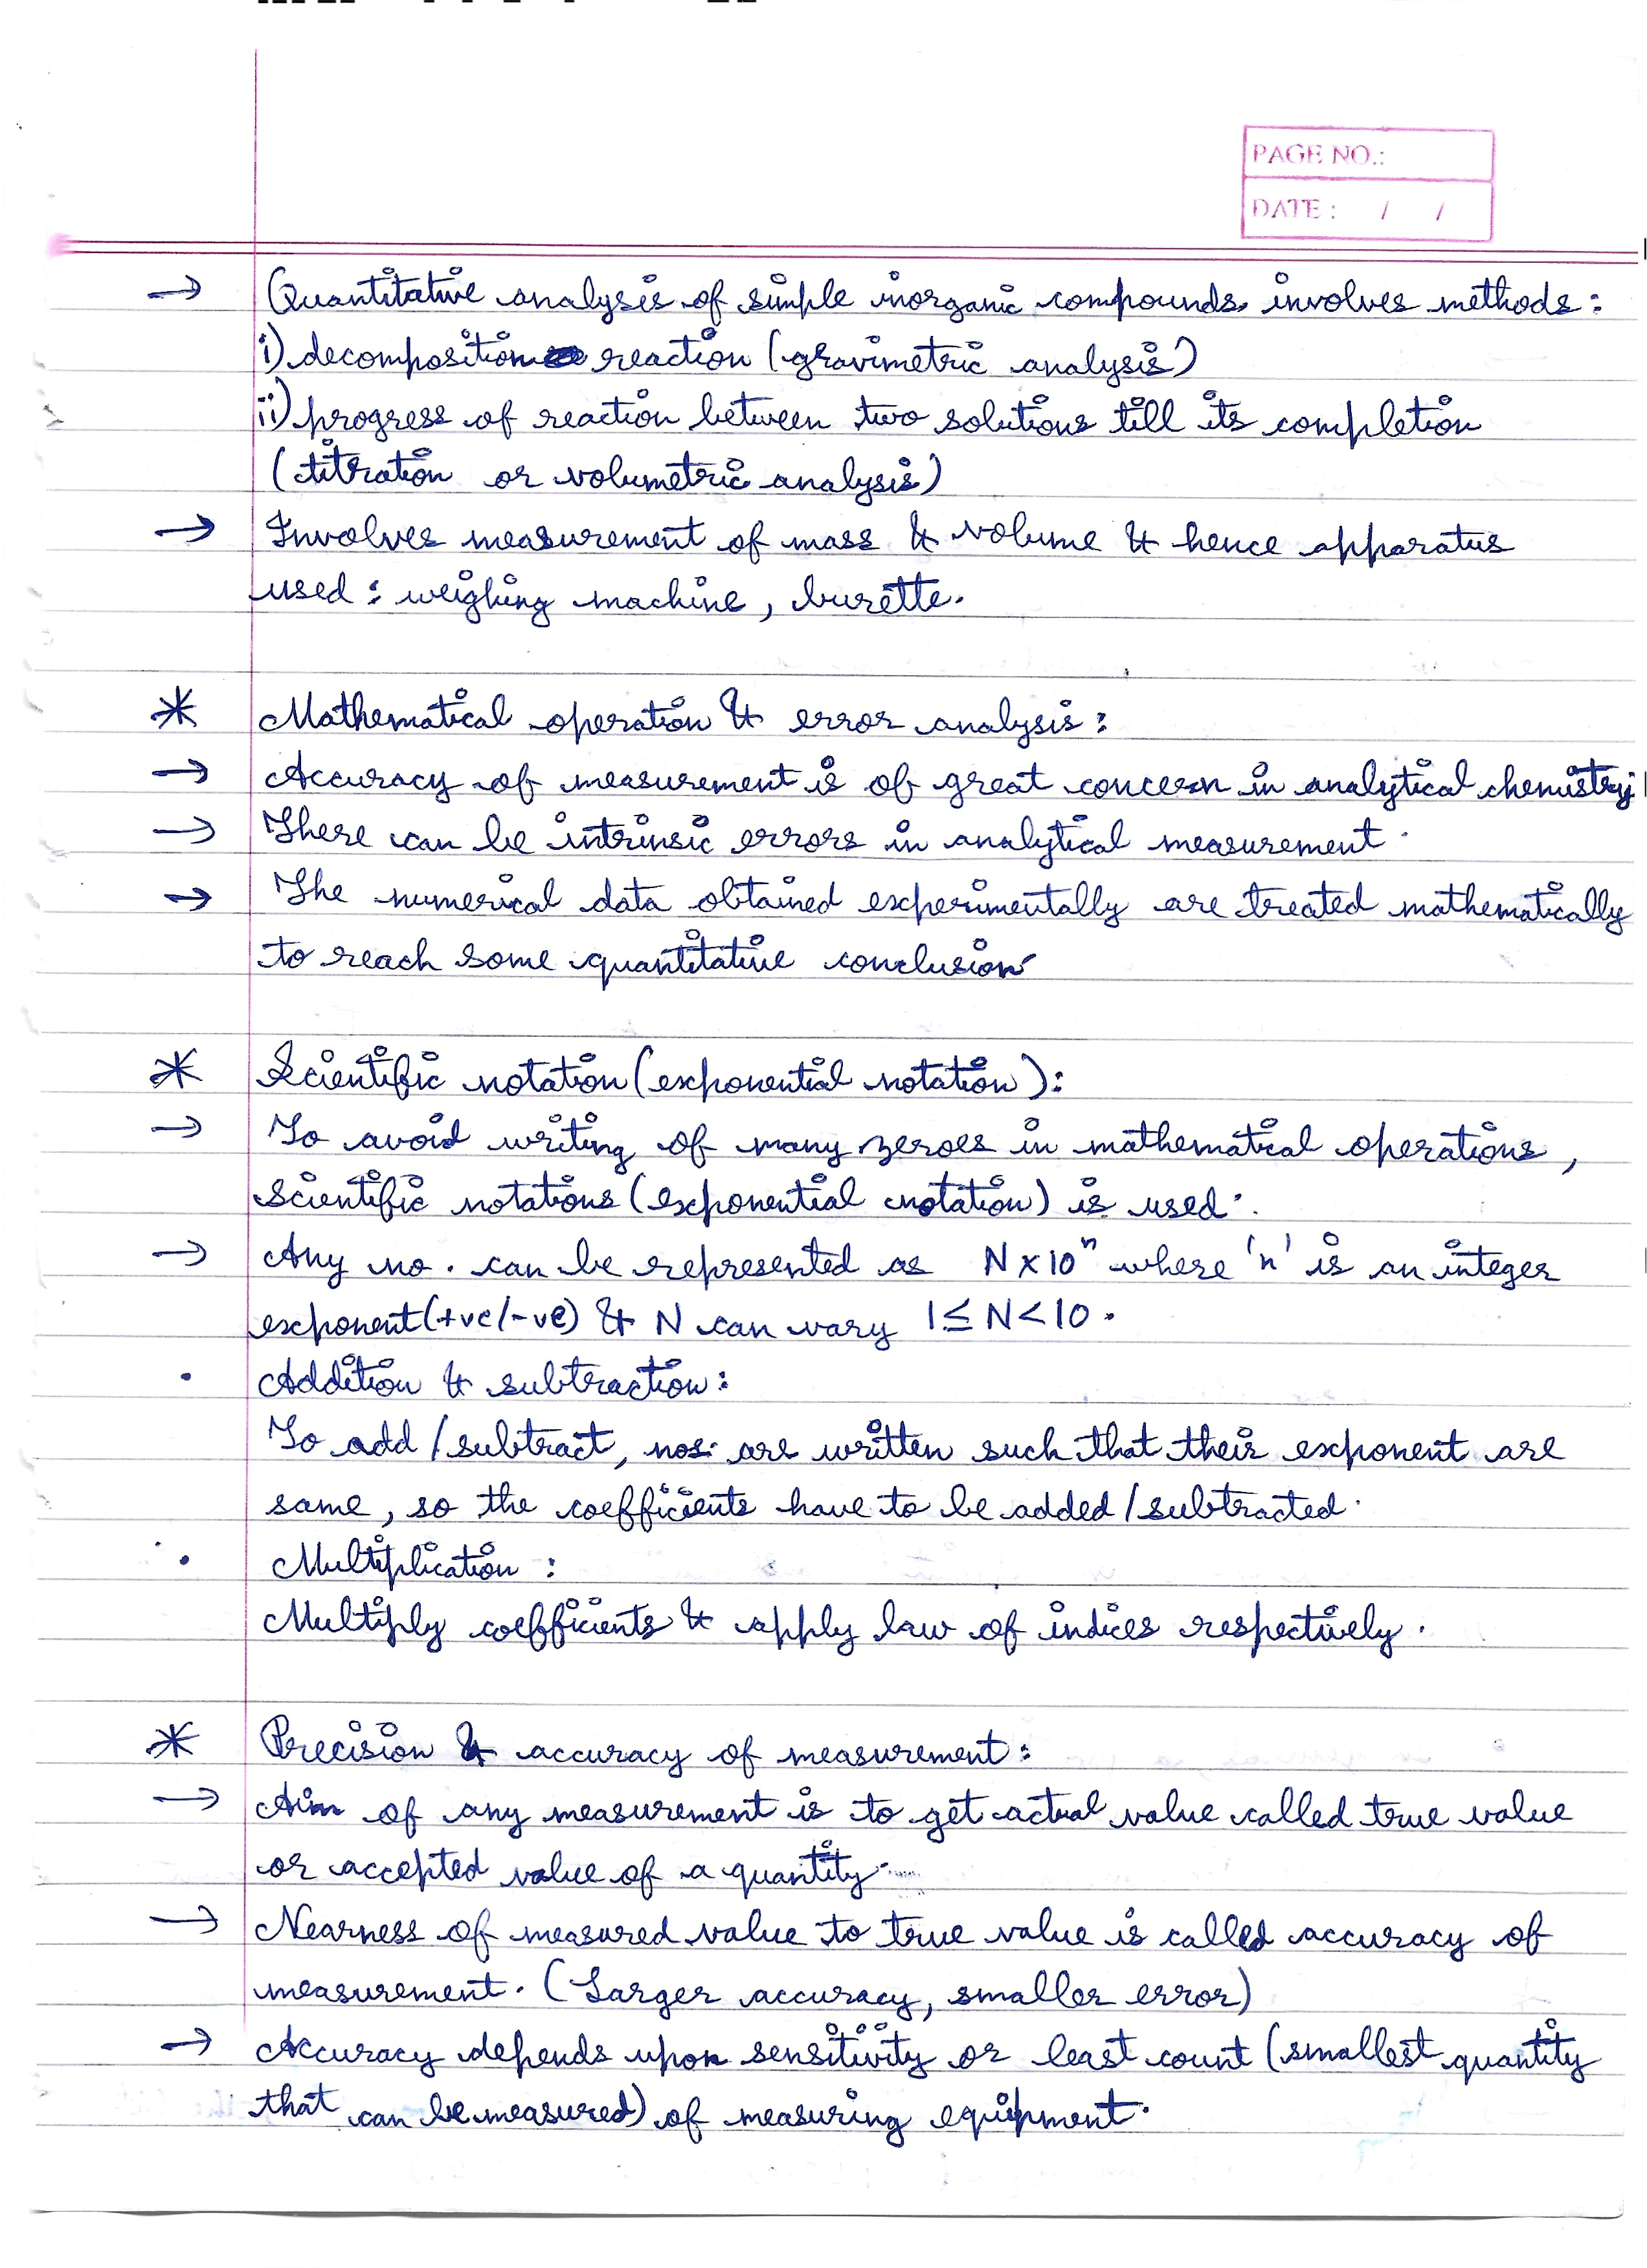 PAGE NO.:
DATE : / /
→ Quantitative analysis of simple inorganic compounds involves methods:
i) decomposition reaction (gravimetric analysis)
ii) progress of reaction between two solutions till its completion
(titration or volumetric analysis)
→ Involves measurement of mass & volume & hence apparatus
used : weighing machine, burette.
* Mathematical operation & error analysis:
→ Accuracy of measurement is of great concern in analytical chemistry
→ There can be intrinsic errors in analytical measurement.
→ The numerical data obtained experimentally are treated mathematically
to reach some quantitative conclusion
* Scientific notation (exponential notation):
→ To avoid writing of many zeroes in mathematical operations,
scientific notations (exponential notation) is used.
→ Any no. can be represented as N x 10ⁿ where 'n' is an integer
exponent (+ve/-ve) & N can vary 1 ≤ N < 10.
• Addition & subtraction:
To add / subtract, nos. are written such that their exponent are
same, so the coefficients have to be added / subtracted.
• Multiplication :
Multiply coefficients & apply law of indices respectively.
* Precision & accuracy of measurement:
→ Aim of any measurement is to get actual value called true value
or accepted value of a quantity.
→ Nearness of measured value to true value is called accuracy of
measurement. (Larger accuracy, smaller error)
→ Accuracy depends upon sensitivity or least count (smallest quantity
that can be measured) of measuring equipment.